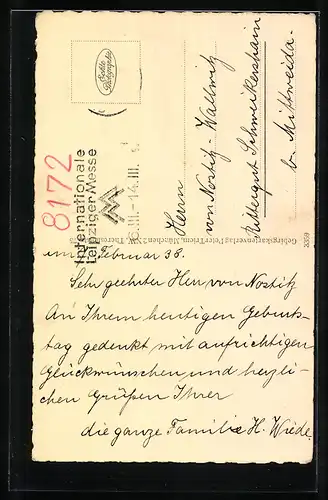 Echte Photographie
8172
Internationale
Leipziger Messe
MM
6.III.–14.III.
Herrn
von Nostitz-Wallwitz
Rittergut Schweikershain
b. Mittweida.
Gebirgskartenverlag Peter Triem, München 2 NW, Theresienstr. 
3359
Februar 38.
Sehr geehrter Herr von Nostitz
An Ihrem heutigen Geburts-
tag gedenkt mit aufrichtigen
Glückwünschen und herzli-
chen Grüßen Ihrer
die ganze Familie H. Wiede.